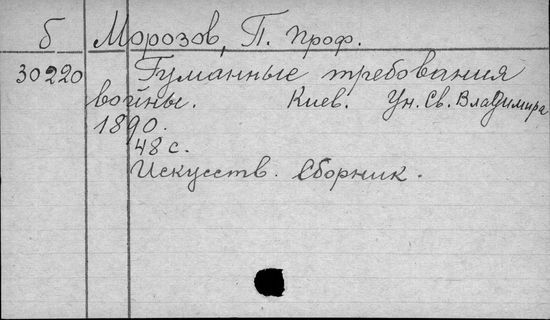 б Морозов, П. проф.
30220 Гуманные требования
войны. Киев. Ун. Св. Владимира
1890.
48 с.
Искусств. сборник.